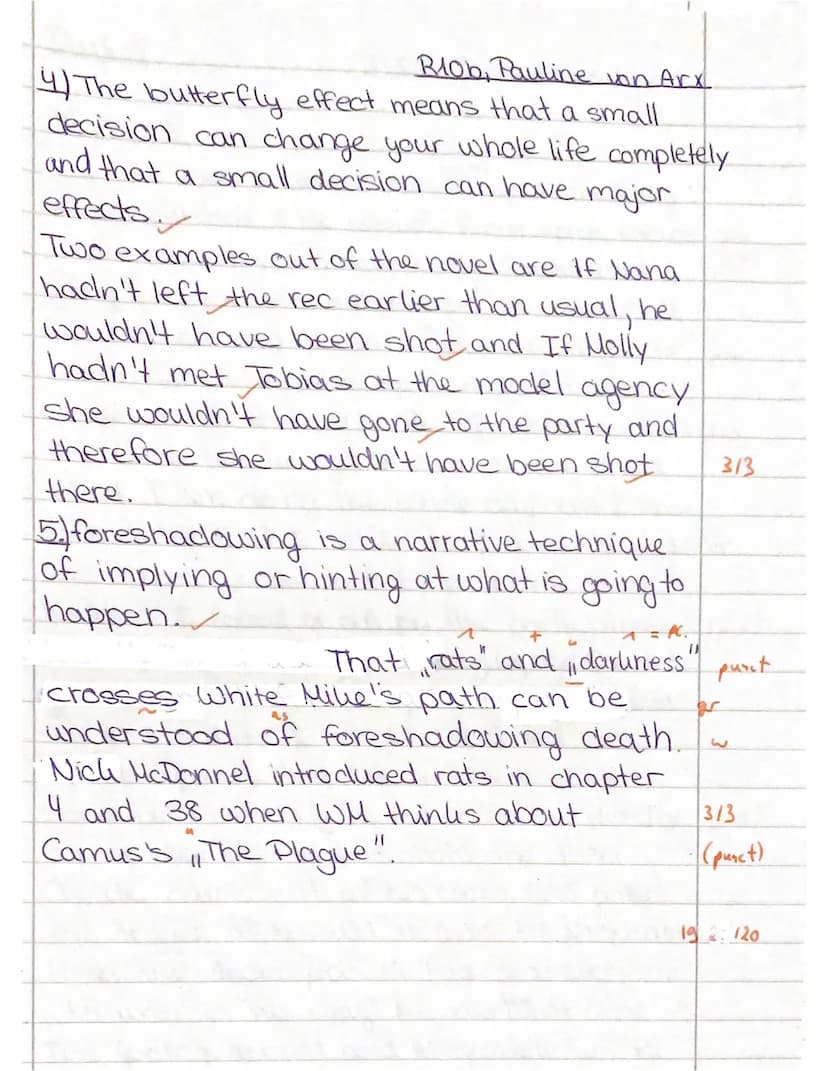 R10b, Pauline von Arx
4) The butterfly effect means that a small
decision can change your whole life completely
and that a small decision can have major
effects.
Two examples out of the novel are If Nana
hadn't left the rec earlier than usual, he
wouldn't have been shot and If Molly
hadn't met Tobias at the model agency
she wouldn't have gone to the party and
therefore she wouldn't have been shot 3/3
there.
5.) foreshadowing is a narrative technique
of implying or hinting at what is going to
happen.
1 + 1 =
That „rats" and „darkness" punct
crosses White Mike's path can be gr
as
understood of foreshadowing death. w
Nick McDonnel introduced rats in chapter
4 and 38 when WM thinks about 3/3
Camus's „The Plague". (punct)
19 120